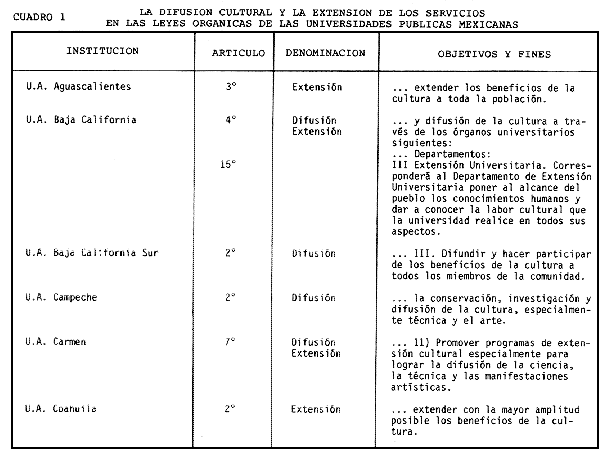 CUADRO 1
LA DIFUSION CULTURAL Y LA EXTENSION DE LOS SERVICIOS
EN LAS LEYES ORGANICAS DE LAS UNIVERSIDADES PUBLICAS MEXICANAS
INSTITUCION ARTICULO DENOMINACION OBJETIVOS Y FINES
U.A. Aguascalientes 3° Extensión ... extender los beneficios de la
cultura a toda la población.
U.A. Baja California 4° Difusión ... y difusión de la cultura a tra-
Extensión vés de los órganos universitarios
siguientes:
... Departamentos:
15° III Extensión Universitaria. Corres-
ponderá al Departamento de Extensión
Universitaria poner al alcance del
pueblo los conocimientos humanos y
dar a conocer la labor cultural que
la universidad realice en todos sus
aspectos.
U.A. Baja California Sur 2° Difusión ... III. Difundir y hacer participar
de los beneficios de la cultura a
todos los miembros de la comunidad.
U.A. Campeche 2° Difusión ... la conservación, investigación y
difusión de la cultura, especialmen-
te técnica y el arte.
U.A. Carmen 7° Difusión ... II) Promover programas de exten-
Extensión sión cultural especialmente para
lograr la difusión de la ciencia,
la técnica y las manifestaciones
artísticas.
U.A. Coahuila 2° Extensión ... extender con la mayor amplitud
posible los beneficios de la cul-
tura.